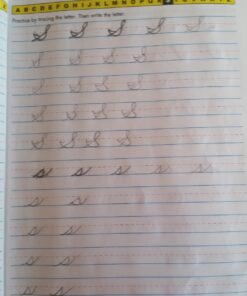 A B C D E F G H I J K L M N O P Q R S T U V W X Y Z
Practice by tracing the letter. Then write the letter.
S S S S S
S S S S
S S S S
S S S S
S S S S
s s s s s
s s
s s
s s
s s